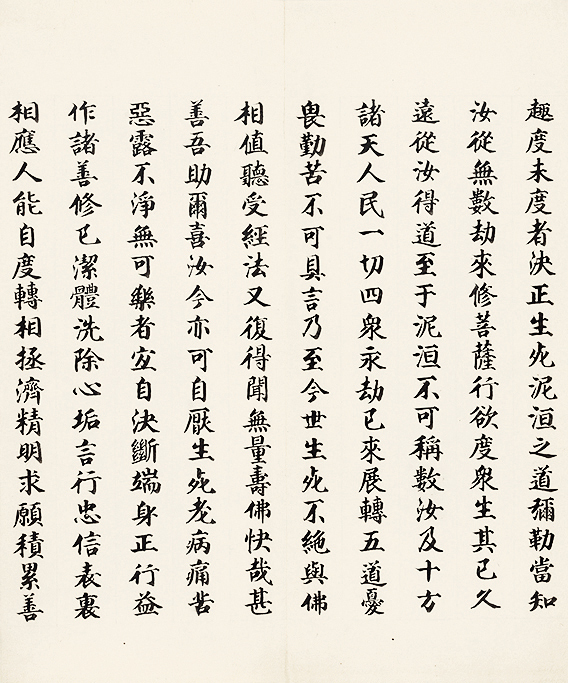 趣度未度者決正生死泥洹之道彌勒當知
汝從無數劫來修菩薩行欲度衆生其已久
遠從汝得道至于泥洹不可稱數汝及十方
諸天人民一切四衆永劫已來展轉五道憂
畏勤苦不可具言乃至今世生死不絕與佛
相值聽受經法又復得聞無量壽佛快哉甚
善吾助爾喜汝今亦可自厭生死老病痛苦
惡露不淨無可樂者宜自決斷端身正行益
作諸善修已潔體洗除心垢言行忠信表裏
相應人能自度轉相拯濟精明求願積累善